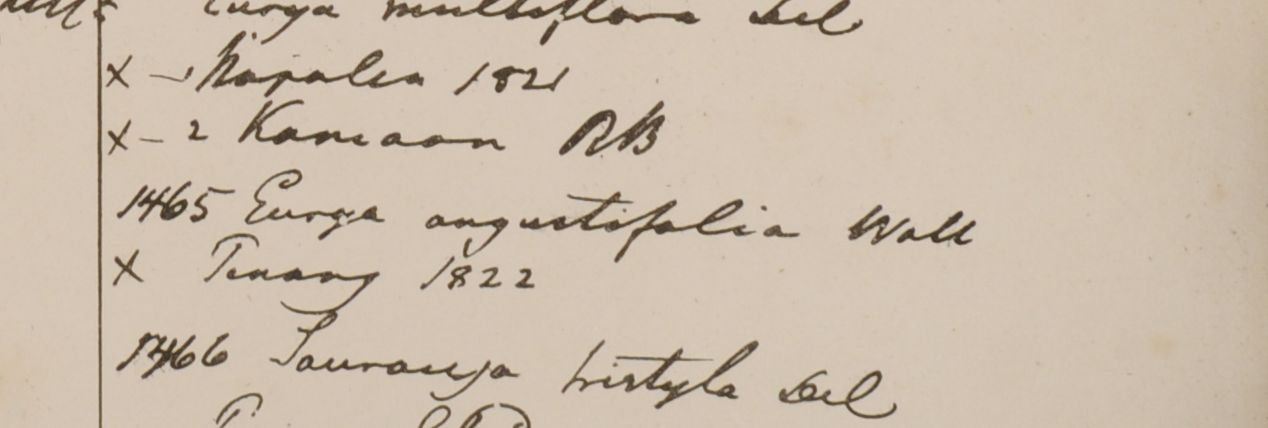 Eurya multiflora Del
x – 1 Napalia 1821
x – 2 Kamaon RB
1465 Eurya angustifolia Wall
x Penang 1822
1466 Saurauja tristyla Del